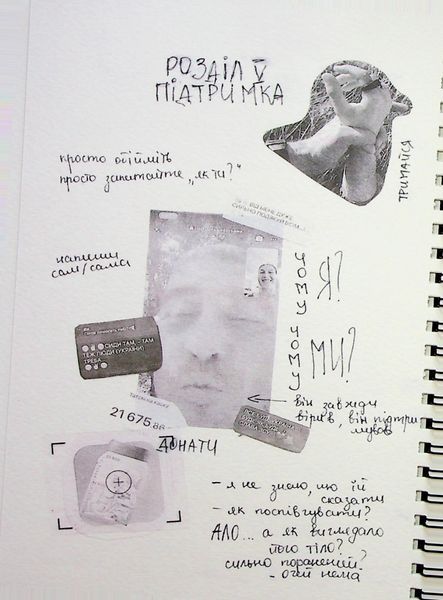 РОЗДІЛ V
ПІДТРИМКА
ТРИМАЙСЯ
просто обійміть
просто запитайте „як ти?"
ВІД МЕНЕ ДУЖЕ
СИЛЬНО ПОДЯКУЙ
напиши
сам/сама
ЧОМУ Я?
ЧОМУ МИ?
СИДИ ТАМ, – ТАМ
ТЕЖ ЛЮДИ (УКРАЇНИ)
ТРЕБА
він завжди
вірив, він підтри
мував
21 675
ДОНАТИ
– я не знаю, що їй
сказати
– як поспівчувати?
АЛО... а як виглядало
його тіло?
сильно поранений?
– очей нема